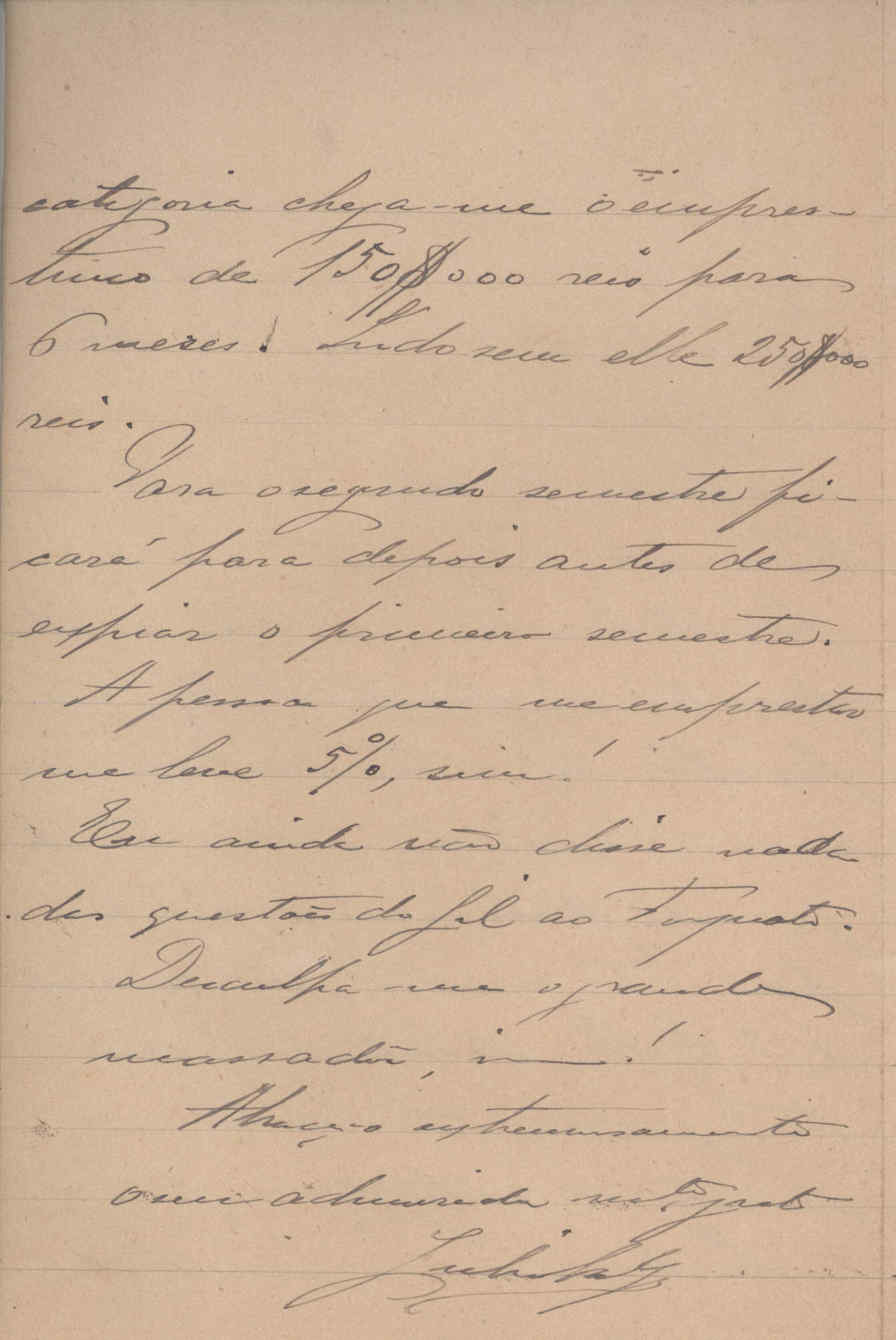 categoria chega-me o empres-
timo de 150$000 reis para
6 mezes! Sendo sem elle 250$000
reis.
Para o segundo semestre fi-
cará para depois antes de
expirar o primeiro semestre.
A pessoa que me emprestar
me leve 5%, sim!
Eu ainda não disse nada
das questões do Gil ao Torquato.
Desculpa-me o grande
massador, sim!
Abraça-o extremosamente
o seu admirador mto grato